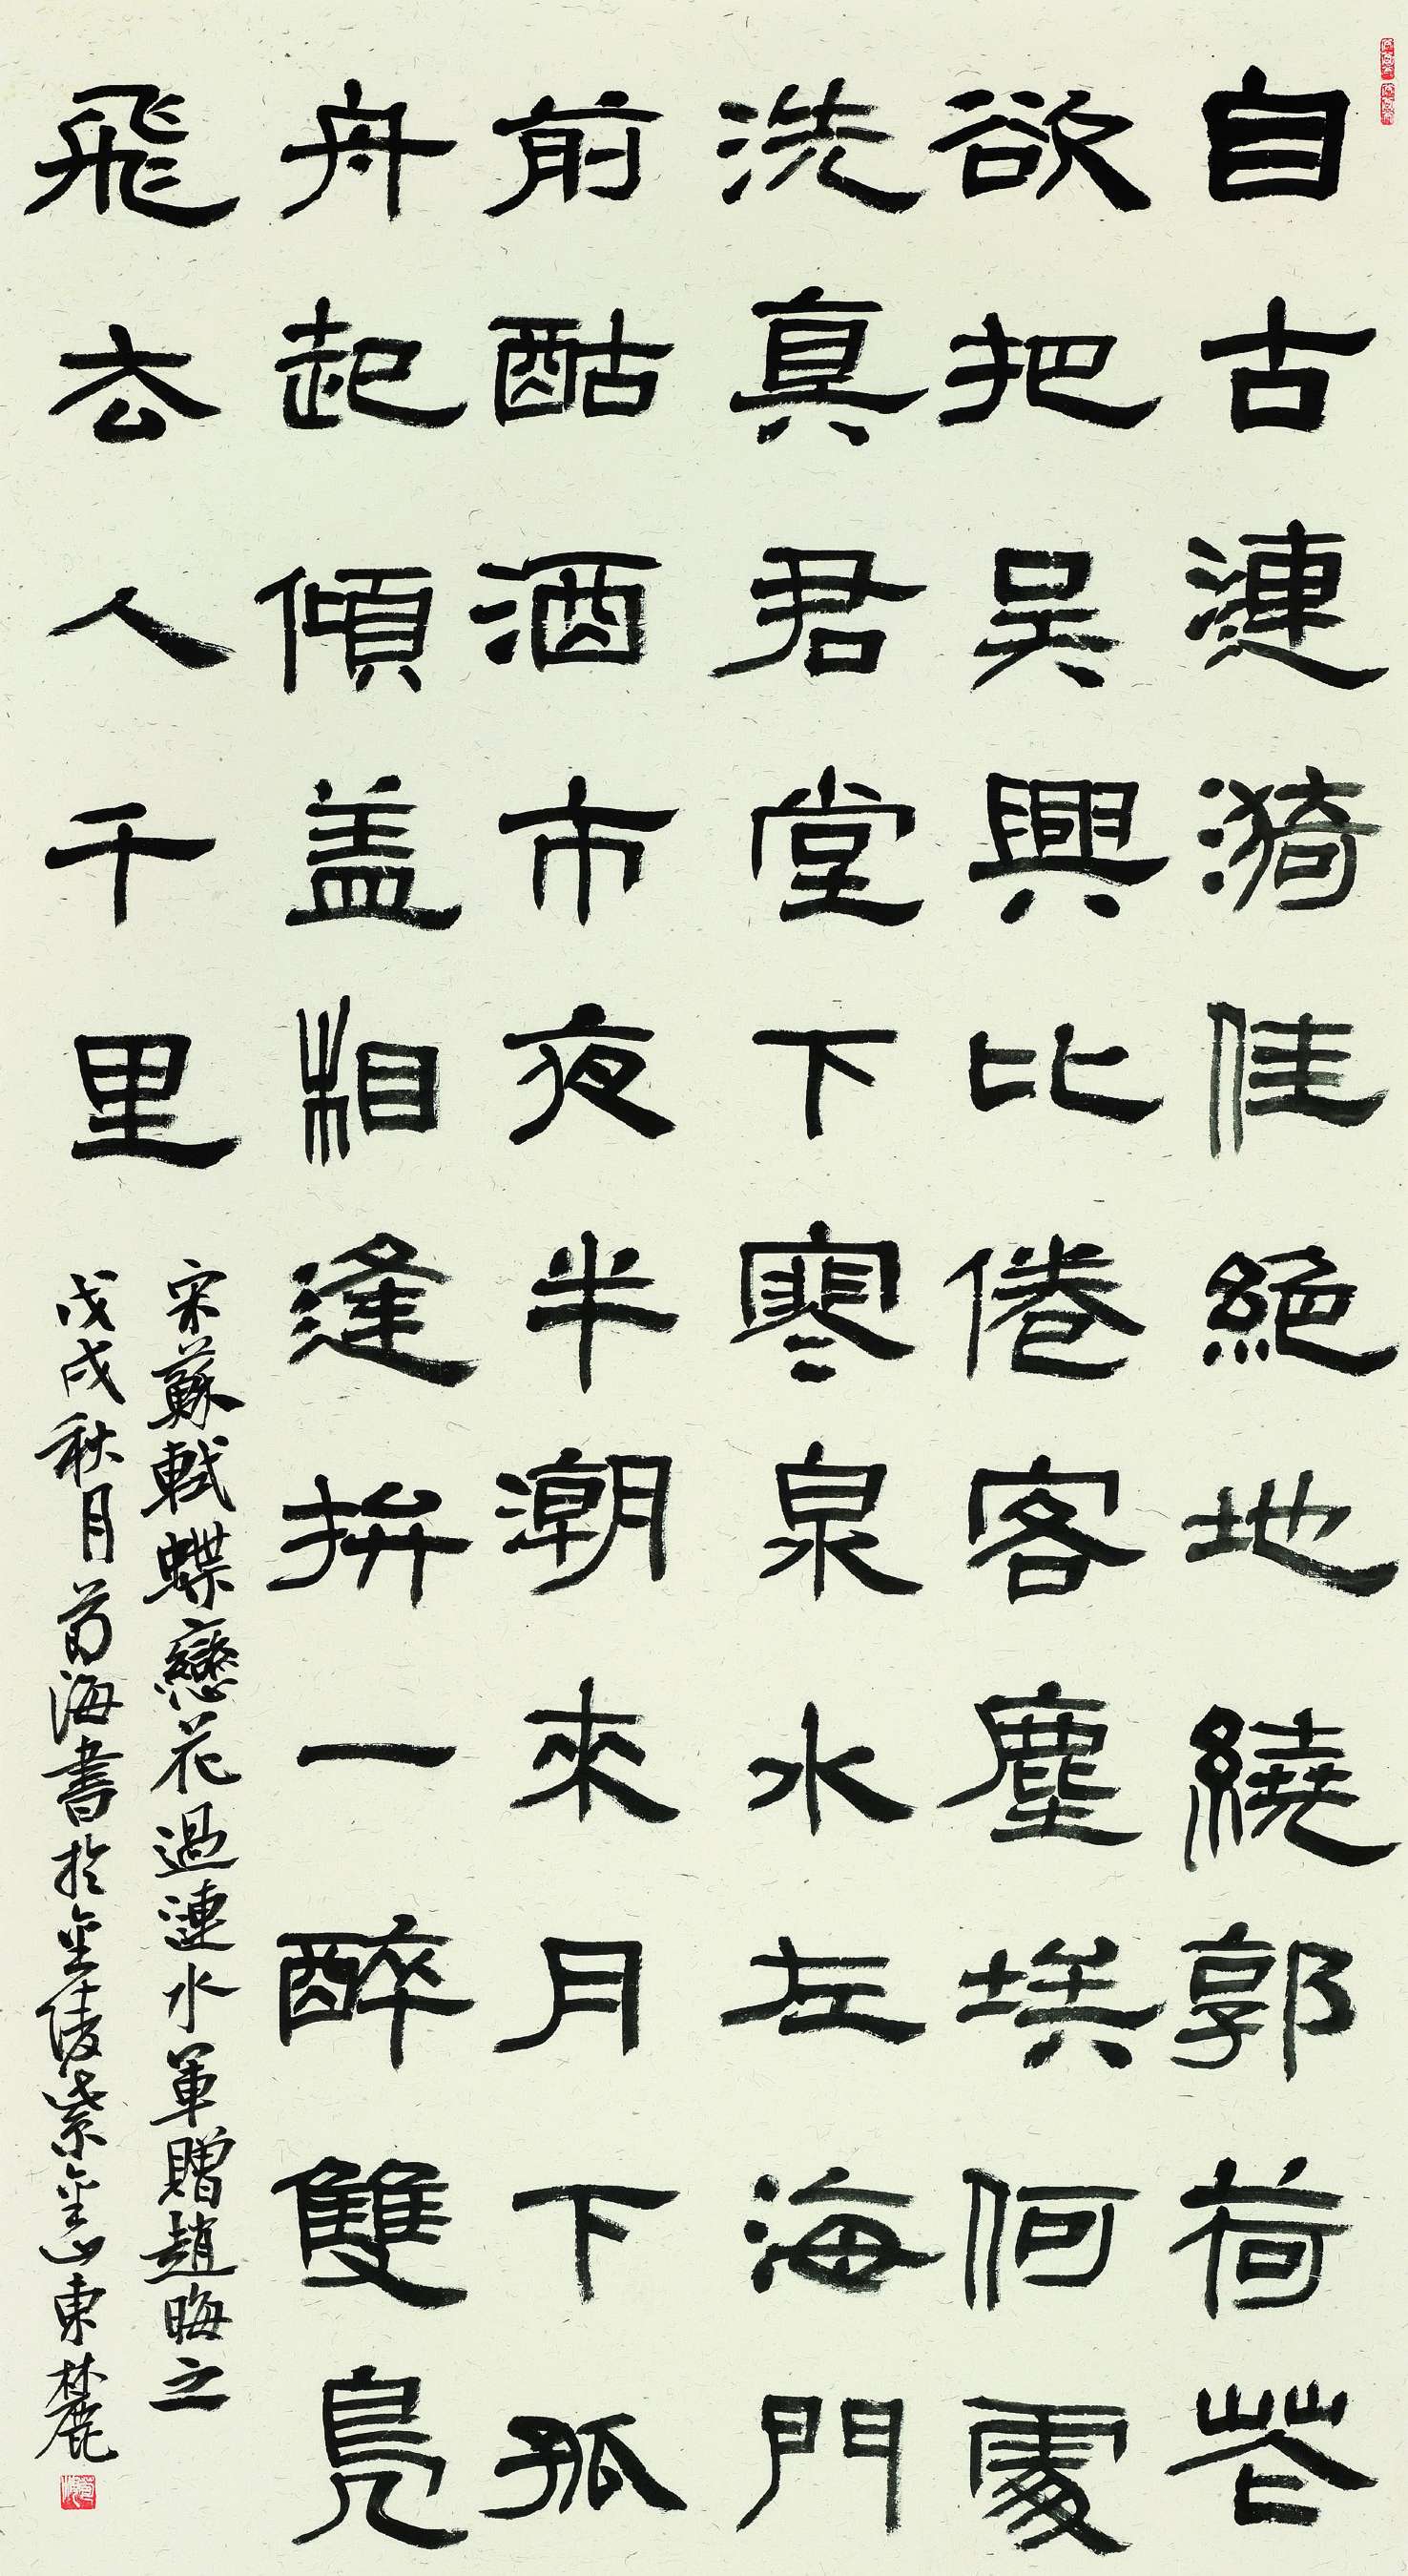 自古漣漪佳絕地繞郭荷花
欲把吳興比倦客塵埃何處
洗真君堂下寒泉水左海門
前酤酒市夜半潮來月下孤
舟起傾盖相逢拚一醉雙鳧
飛去人千里
宋蘇軾蝶戀花過漣水軍贈趙晦之
戊戌秋月苟海書於金陵紫金山東麓